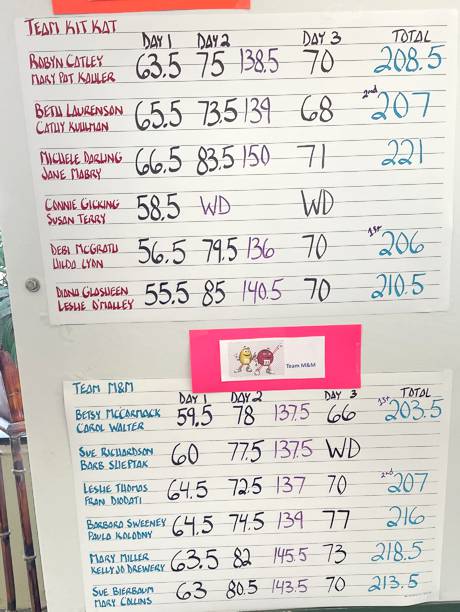 TEAM KIT KAT
DAY 1 DAY 2 DAY 3 TOTAL
ROBYN CATLEY 63.5 75 138.5 70 208.5
MARY PAT KAULER
BETH LAURENSON 65.5 73.5 139 68 2nd 207
CATHY KULLMAN
MICHELE DARLING 66.5 83.5 150 71 221
JANE MABRY
CONNIE GICKING 58.5 WD WD
SUSAN TERRY
DEBI MCGRATH 56.5 79.5 136 70 1st 206
HILDA LYON
DIANA GLOSHEEN 55.5 85 140.5 70 210.5
LESLIE O'MALLEY
Team M&M
TEAM M&M
DAY 1 DAY 2 DAY 3 TOTAL
BETSY MCCORMACK 59.5 78 137.5 66 1st 203.5
CAROL WALTER
SUE RICHARDSON 60 77.5 137.5 WD
BARB SHEPTAK
LESLIE THOMAS 64.5 72.5 137 70 2nd 207
FRAN DIODATI
BARBARA SWEENEY 64.5 74.5 139 77 216
PAULA KOLODNY
MARY MILLER 63.5 82 145.5 73 218.5
KELLY JO DREWERY
SUE BIERBAUM 63 80.5 143.5 70 213.5
MARY COLLINS